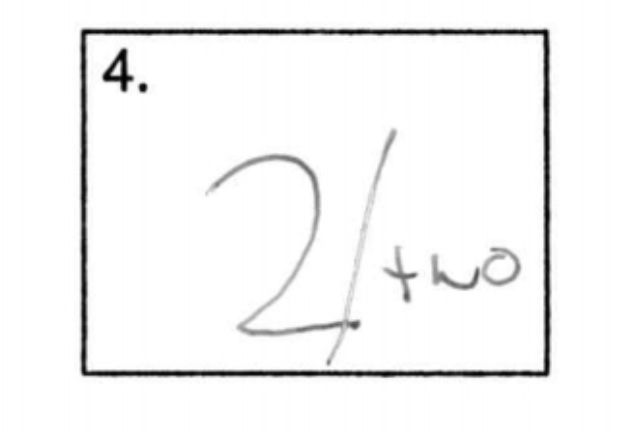 4.
2/two